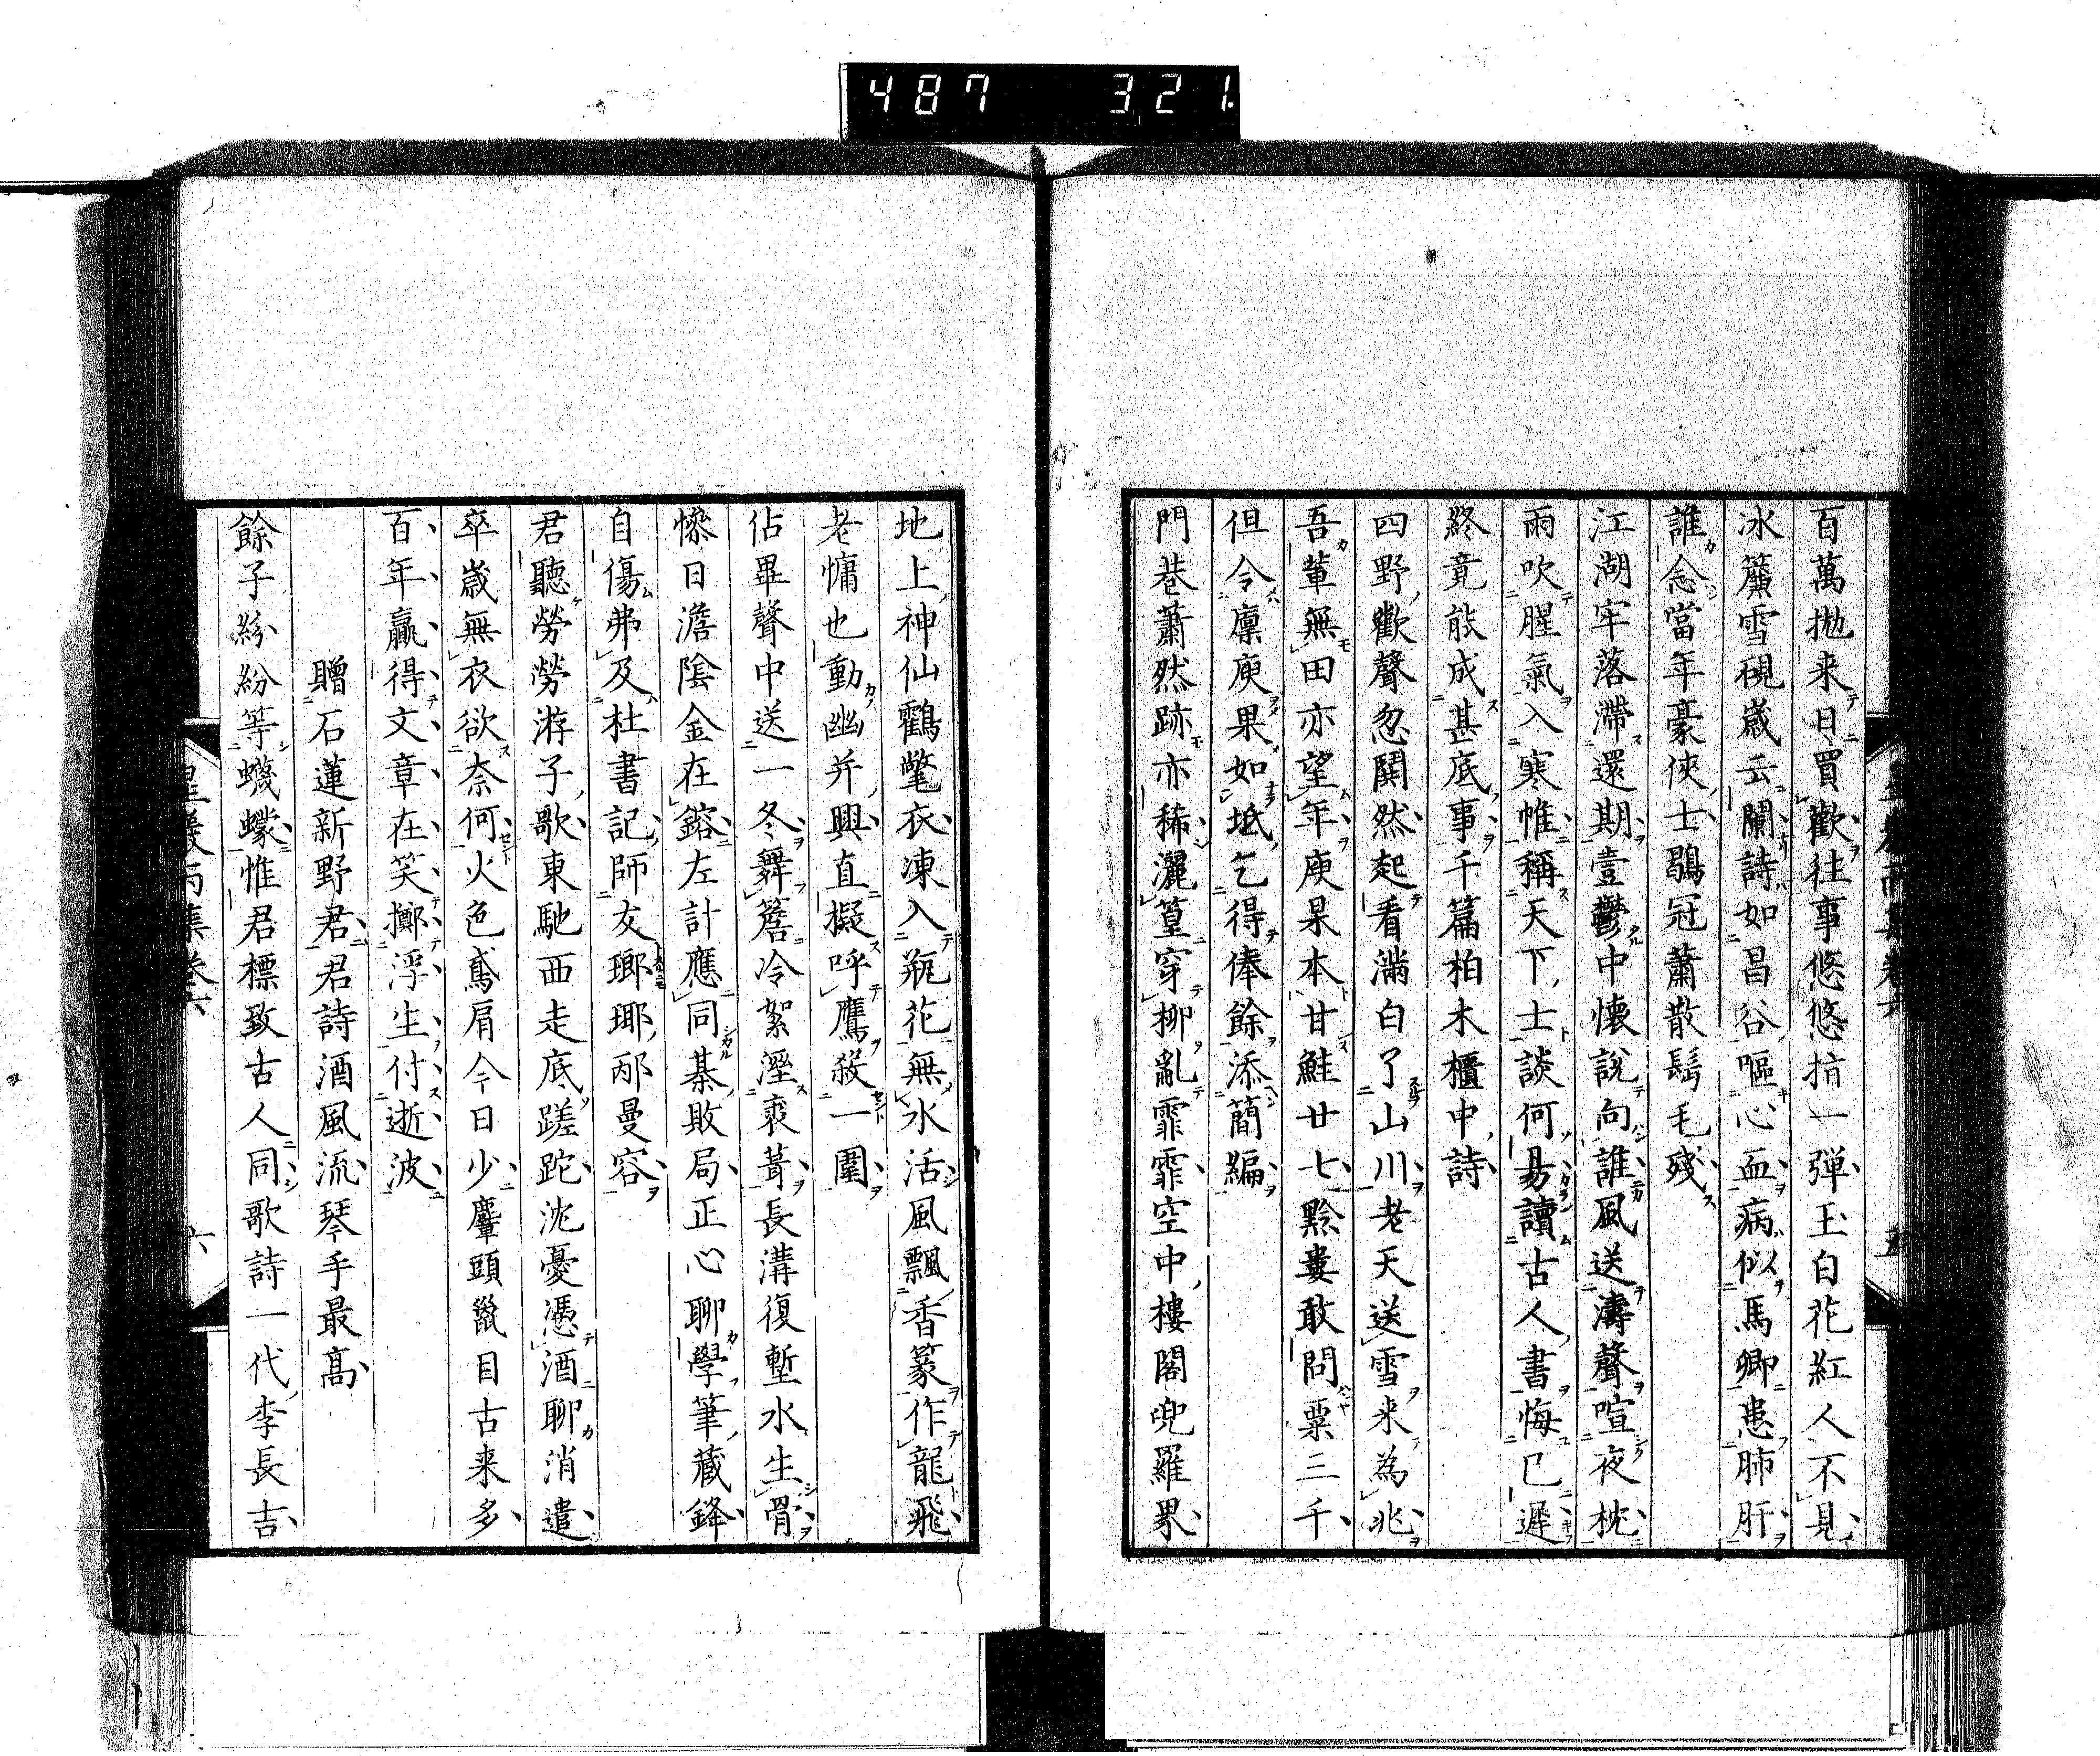 487 321
百萬抛来日買歡往事悠悠指一彈玉白花紅人不見
冰簾雪硯歳云闌詩如昌谷嘔心血病似馬卿患肺肝
誰念當年豪俠士鶡冠蕭散鬅毛殘
江湖牢落滯還期壹鬱中懷説向誰風送濤聲喧夜枕
雨吹腥氣入寒帷稱天下士談何易讀古人書悔已遲
終竟能成甚底事千篇柏木櫃中詩
四野歡聲忽鬨然起看滿白了山川老天送雪来為兆
吾輩無田亦望年庾杲本甘鮭廿七黔婁敢問粟三千
但令廩庾果如坻乞得俸餘添簡編
門巷蕭然跡亦稀灑篁穿柳亂霏霏空中樓閣兜羅界
地上神仙鸖氅衣凍入瓶花無水活風飄香篆作龍飛
老慵也動幽并興直擬呼鷹殺一圍
佔畢聲中送一冬舞簷冷絮溼裘茸長溝復塹水生骨
㦗日澹陰金在鎔左計應同棊敗局正心聊學筆藏鋒
自傷弗及杜書記師友瑯琊邴曼容
君聽勞勞游子歌東馳西走底蹉跎沈憂憑酒聊消遣
卒歳無衣欲奈何火色鳶肩今日少麞頭鼠目古来多
百年贏得文章在笑擲浮生付逝波
贈石蓮新野君君詩酒風流琴手最高
餘子紛紛等蠛蠓惟君標致古人同歌詩一代李長吉
星巖丙集卷六
六